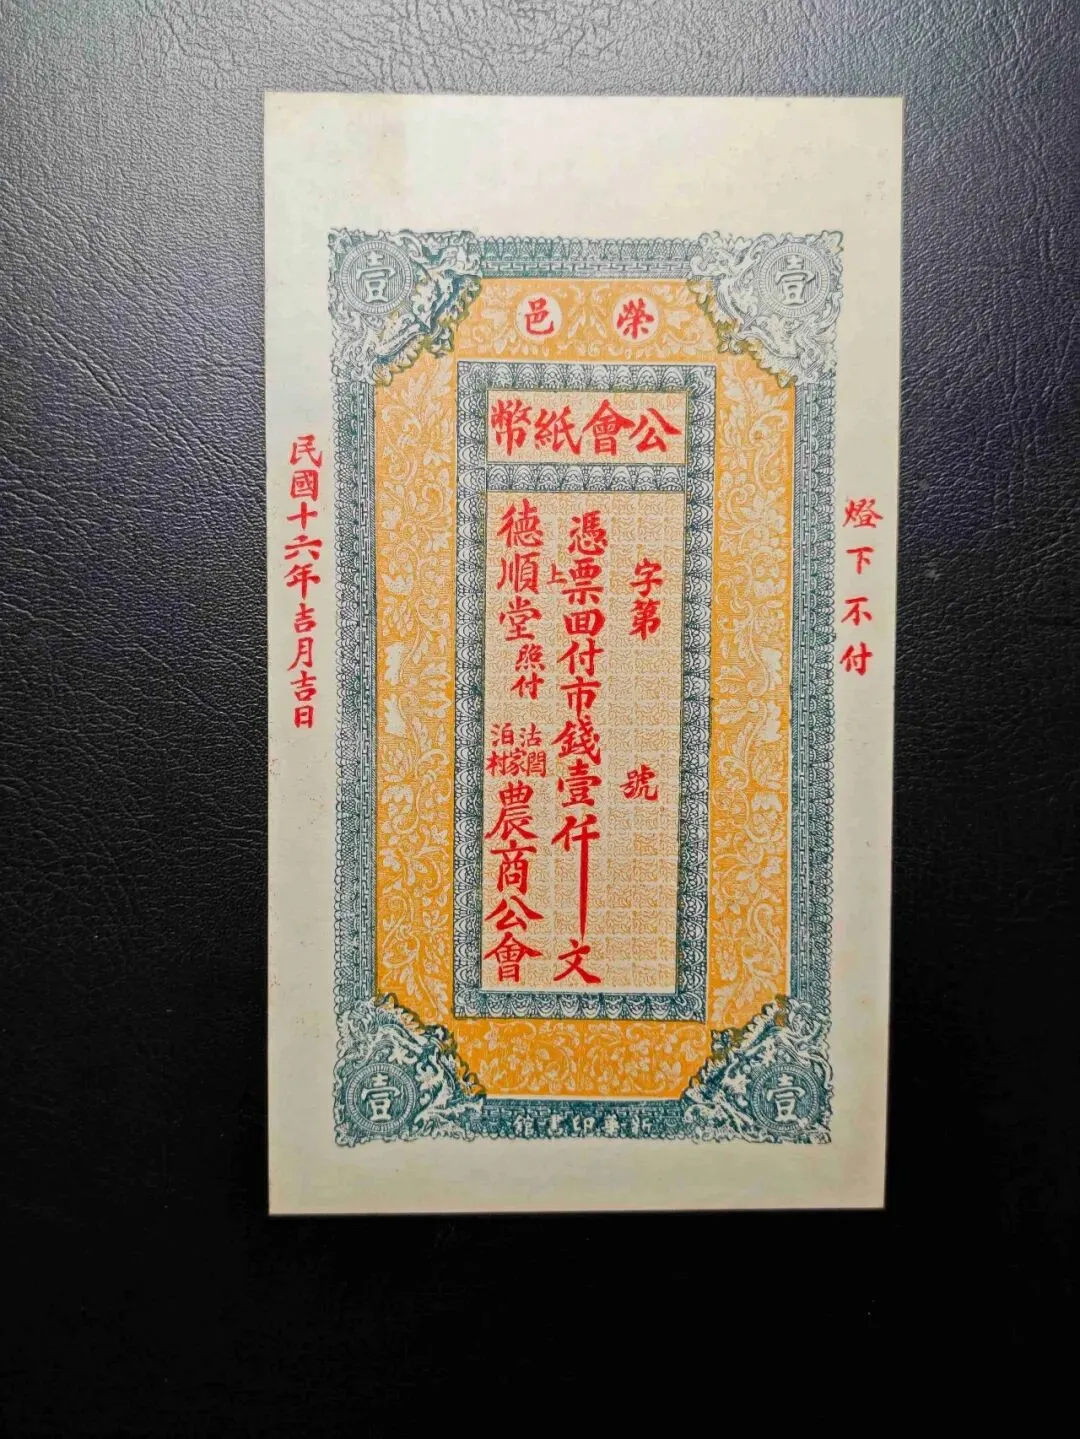 壹
壹
榮邑
公會紙幣
燈下不付
字第 號
憑票囬付市錢壹仟文
上
德順堂照付
沽泊
閆家村
農商公會
民國十六年吉月吉日
壹
壹
新華印書館